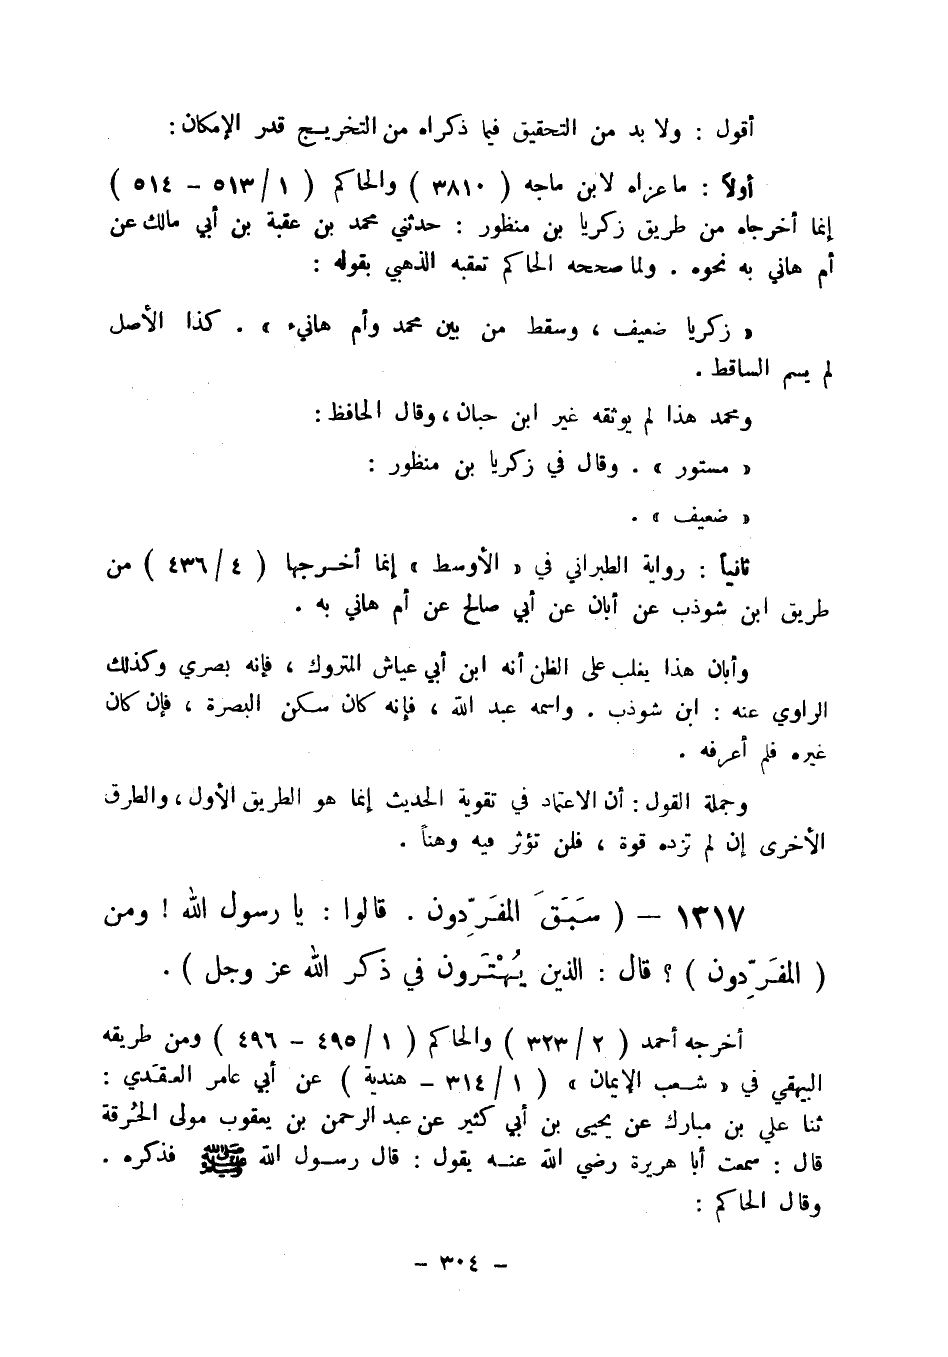 أقول : ولا بد من التحقيق فيما ذكراه من التخريـج قدر الإمكان :
أولاً : ما عزاه لابن ماجه ( ٣٨١٠ ) والحاكم ( ١ / ٥١٣ – ٥١٤ )
إنما أخرجاه من طريق زكريا بن منظور : حدثني محمد بن عقبة بن أبي مالك عن
أم هاني به نحوه . ولما صححه الحاكم تعقبه الذهبي بقوله :
« زكريا ضعيف ، وسقط من بين محمد وأم هانيء » . كذا الأصل
لم يسم الساقط .
ومحمد هذا لم يوثقه غير ابن حبان ، وقال الحافظ :
« مستور » . وقال في زكريا بن منظور :
« ضعيف » .
ثانياً : رواية الطبراني في « الأوسط » إنما أخـرجها ( ٤ / ٤٣٦ ) من
طريق ابن شوذب عن أبان عن أبي صالح عن أم هاني به .
وأبان هذا يغلب على الظن أنه ابن أبي عياش المتروك ، فإنه بصري وكذلك
الراوي عنه : ابن شوذب . واسمه عبد الله ، فإنه كان سكن البصرة ، فإن كان
غيره فلم أعرفه .
وجملة القول : أن الاعتماد في تقوية الحديث إنما هو الطريق الأول ، والطرق
الأخرى إن لم تزده قوة ، فلن تؤثر فيه وهناً .
١٣١٧ – ( سَبَقَ المفَرِّدون . قالوا : يا رسول الله ! ومن
( المفَرِّدون ) ؟ قال : الذين يُهْتَرون في ذكر الله عز وجل ) .
أخرجه أحمد ( ٢ / ٣٢٣ ) والحاكم ( ١ / ٤٩٥ – ٤٩٦ ) ومن طريقه
البيهقي في « شعب الإيمان » ( ١ / ٣١٤ – هندية ) عن أبي عامر العقَدي :
ثنا علي بن مبارك عن يحيى بن أبي كثير عن عبد الرحمن بن يعقوب مولى الحُرقة
قال : سمعت أبا هريرة رضي الله عنـه يقول : قال رسـول الله ﷺ فذكره .
وقال الحاكم :
– ٣٠٤ –